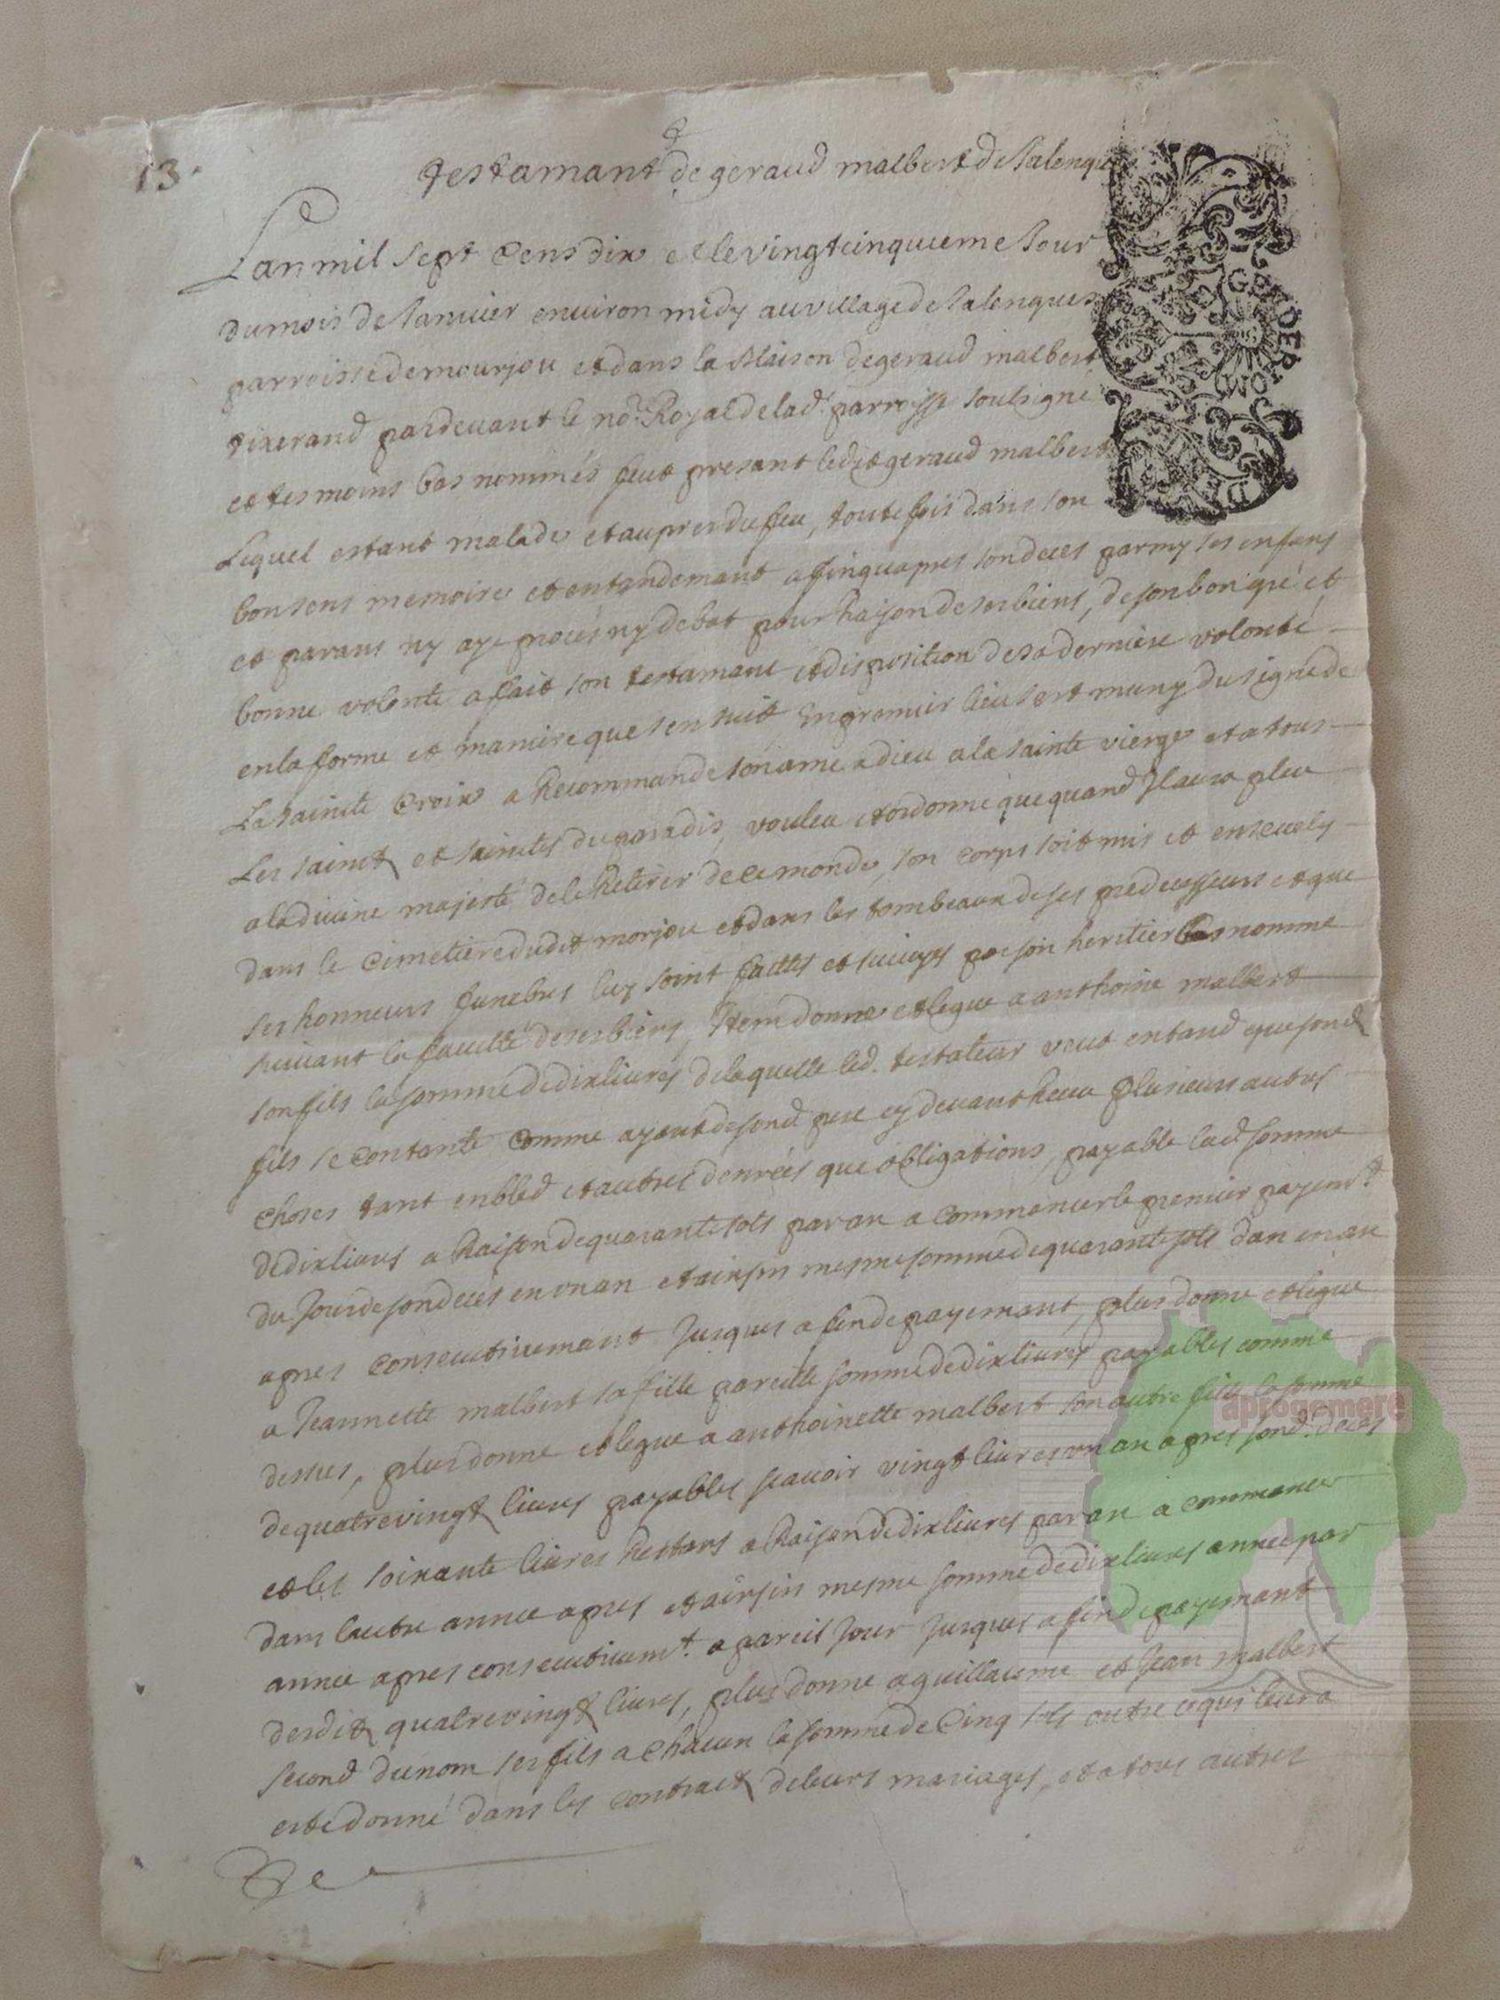 13.
testamant de geraud malbert de Salenques
Lan mil sept cens dix et le vingt cinquieme Jour
du mois de Janvier environ midy au village de Salenques
parroisse de mourjou et dans la Maison de geraud malbert
tixerand pardevant le no.re Royal de lad. parroisse soubsigné
et tesmoins bas nommés feut presant ledit geraud malbert
Lequel estant malade et aupres du feu, toutefois dans son
bon sens memoire et entandemant affin quapres son deces parmy ses enfans
et parans ny aye procés ny debat pour Raison de ses biens, de son bon gré et
bonne volonté a fait son testamant et disposition de sa derniere volonté
en la forme et maniere que sen suit En premier lieu sest muny du signe de
La sainte Croix a Recommandé son ame a dieu a la sainte vierge et a tous
Les saints et saintes du paradis, vouleu et ordonné que quand Il aura pleu
a la divine majesté de le Retirer de ce monde, son corps soit mis et ensevely
dans le cimetiere dudit morjou et dans les tombeaux de ses predecesseurs et que
ses honneurs funebres luy soint faittes et suivyes par son heritier bas nomme
suivant la faculté de ses biens, Item donne et legue a anthoine malbert
son fils la somme de dix livres de laquelle led. testateur veut entand que sond.
fils se contante comme ayant de sond. pere cy devant Receu plusieurs autres
choses tant en bled et autres denrées que obligations, payable lad. somme
de dix livres a Raison de quarante sols par an a commancer le premier payem.t
du Jour de son decés en un an et ainsin mesme somme de quarante sols dan en an
apres consecutivemant Jusques a fin de payemant, plus donne et legue
a Jeannette malbert sa fille pareille somme de dix livres payables comme
dessus, plus donne et legue a anthoinette malbert son autre fille la somme
de quatre vingt livres payables scavoir vingt livres un an apres sond. deces
et les soixante livres Restans a Raison de dix livres par an a commancer
dans lautre annee apres et ainsin mesme somme de dix livres annee par
annee apres consecutivem.t a pareil Jour Jusques a fin de payemant
desdits quatre vingt livres, plus donne a guillaume et Jean malbert
second du nom ses fils a chacun la somme de Cinq sols outre ce qui leur a
esté donné dans les contracts de leurs mariages, et a tous autres
GENER
MOI
aprogemere